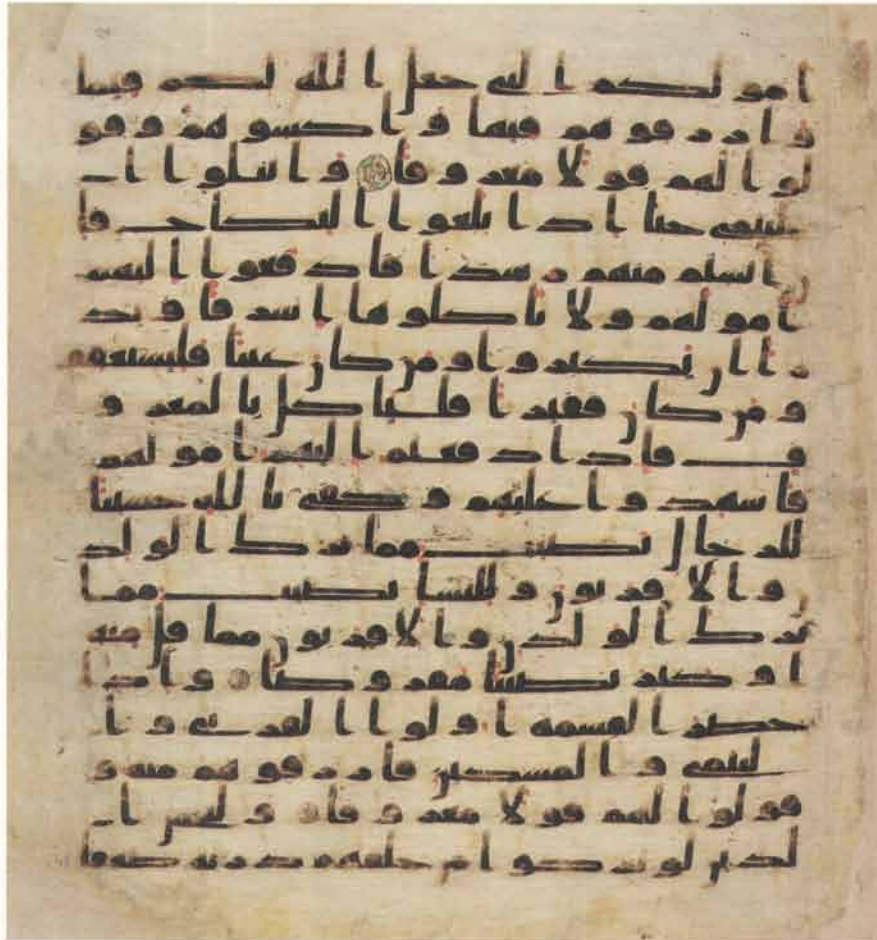 امولكم التي جعل الله لكم قيما
وارزقوهم فيها واكسوهم وقو
لوا لهم قولا معروفا وابتلوا ا
ليتمى حتى اذا بلغوا النكاح فا
ن انستم منهم رشدا فادفعوا اليهم
امولهم ولا تاكلوها اسرافا وبد
را ان يكبروا ومن كان غنيا فليستعفف
ومن كان فقيرا فلياكل بالمعرو
ف فاذا دفعتم اليهم امولهم
فاشهدوا عليهم وكفى بالله حسيبا
للرجال نصيب مما ترك الولد
ن والاقربون وللنسا نصيب مما
ترك الولدن والاقربون مما قل منه
او كثر نصيبا مفروضا واذا
حضر القسمة اولوا القربى وا
ليتمى والمسكين فارزقوهم منه و
قولوا لهم قولا معروفا وليخش ا
لذين لو تركوا من خلفهم ذرية ضعفا